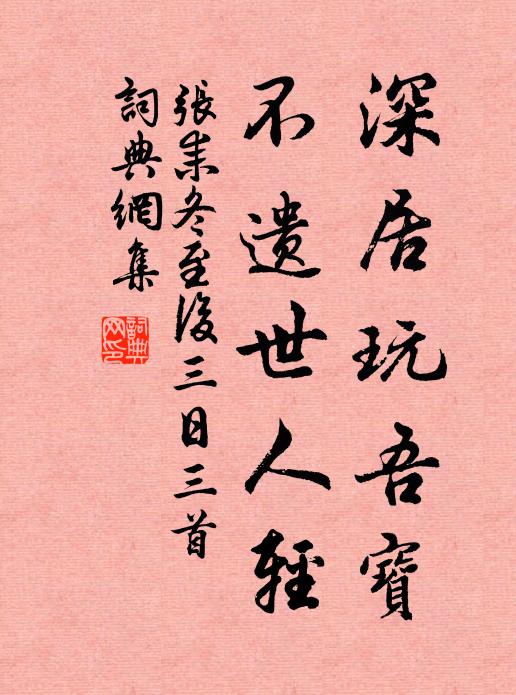 深居玩吾寶
不遺世人輕
張耒冬至後三日三首
詞典網集
詞典網印